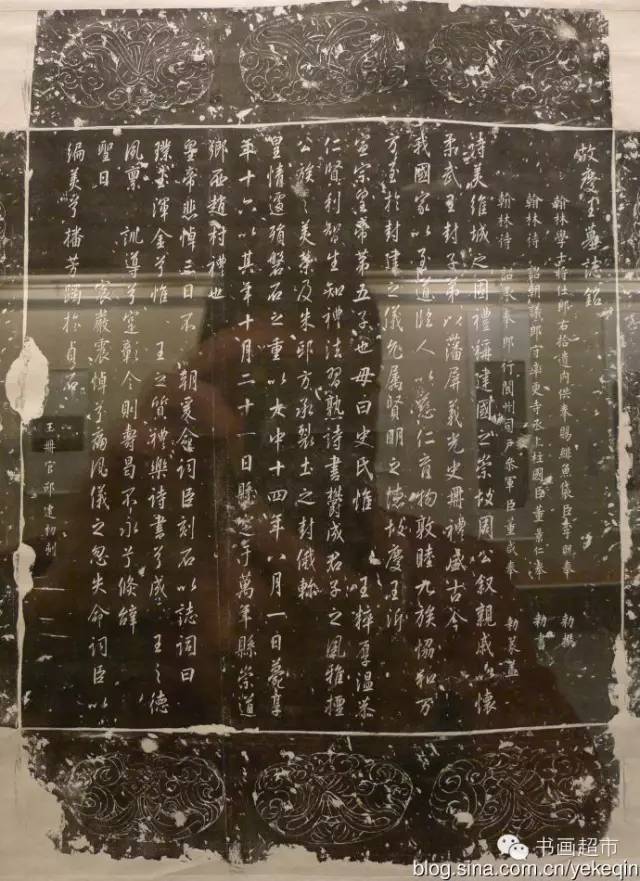 故慶王墓誌銘
翰林學士將仕郎右拾遺內供奉賜緋魚袋臣李 奉 勅撰
翰林待 詔朝議郎守率更寺丞上柱國臣董景仁奉 勅書
翰林待 詔承奉郎行閬州司戶叅軍臣董咸奉 勅篆蓋
詩美維城之固禮稱建國之崇故周公叙親戚以懷
柔武王封子弟以藩屏義光史冊禮盛古今
我國家以孝道臨人以慈仁育物敦睦九族協和万
方至於封建之儀允属賢明之德故慶王沂
宣宗皇帝第五子也母曰史氏惟 王粹孕温恭
仁賢利智生知禮法習熟詩書鬱成君子之風雅擅
公族之美榮及朱邸方承裂土之封俄軫
皇情遽殞磐石之重以大中十四年八月一日薨享
年十六以其年十月二十一日縣窆于萬年縣崇道
鄉西趙村禮也
皇帝悲悼三日不 朝爰命詞臣刻石以誌詞曰
璞玉渾金兮惟 王之質禮樂詩書兮成 王之德
風稟 訓導兮寔彰今則壽昌不永兮倐辭
聖日 宸嚴震悼兮痛風儀之忽失命詞臣以
編美兮播芳躅於貞石
玉冊官邵建初刻
书画超市
blog.sina.com.cn/yekeqin